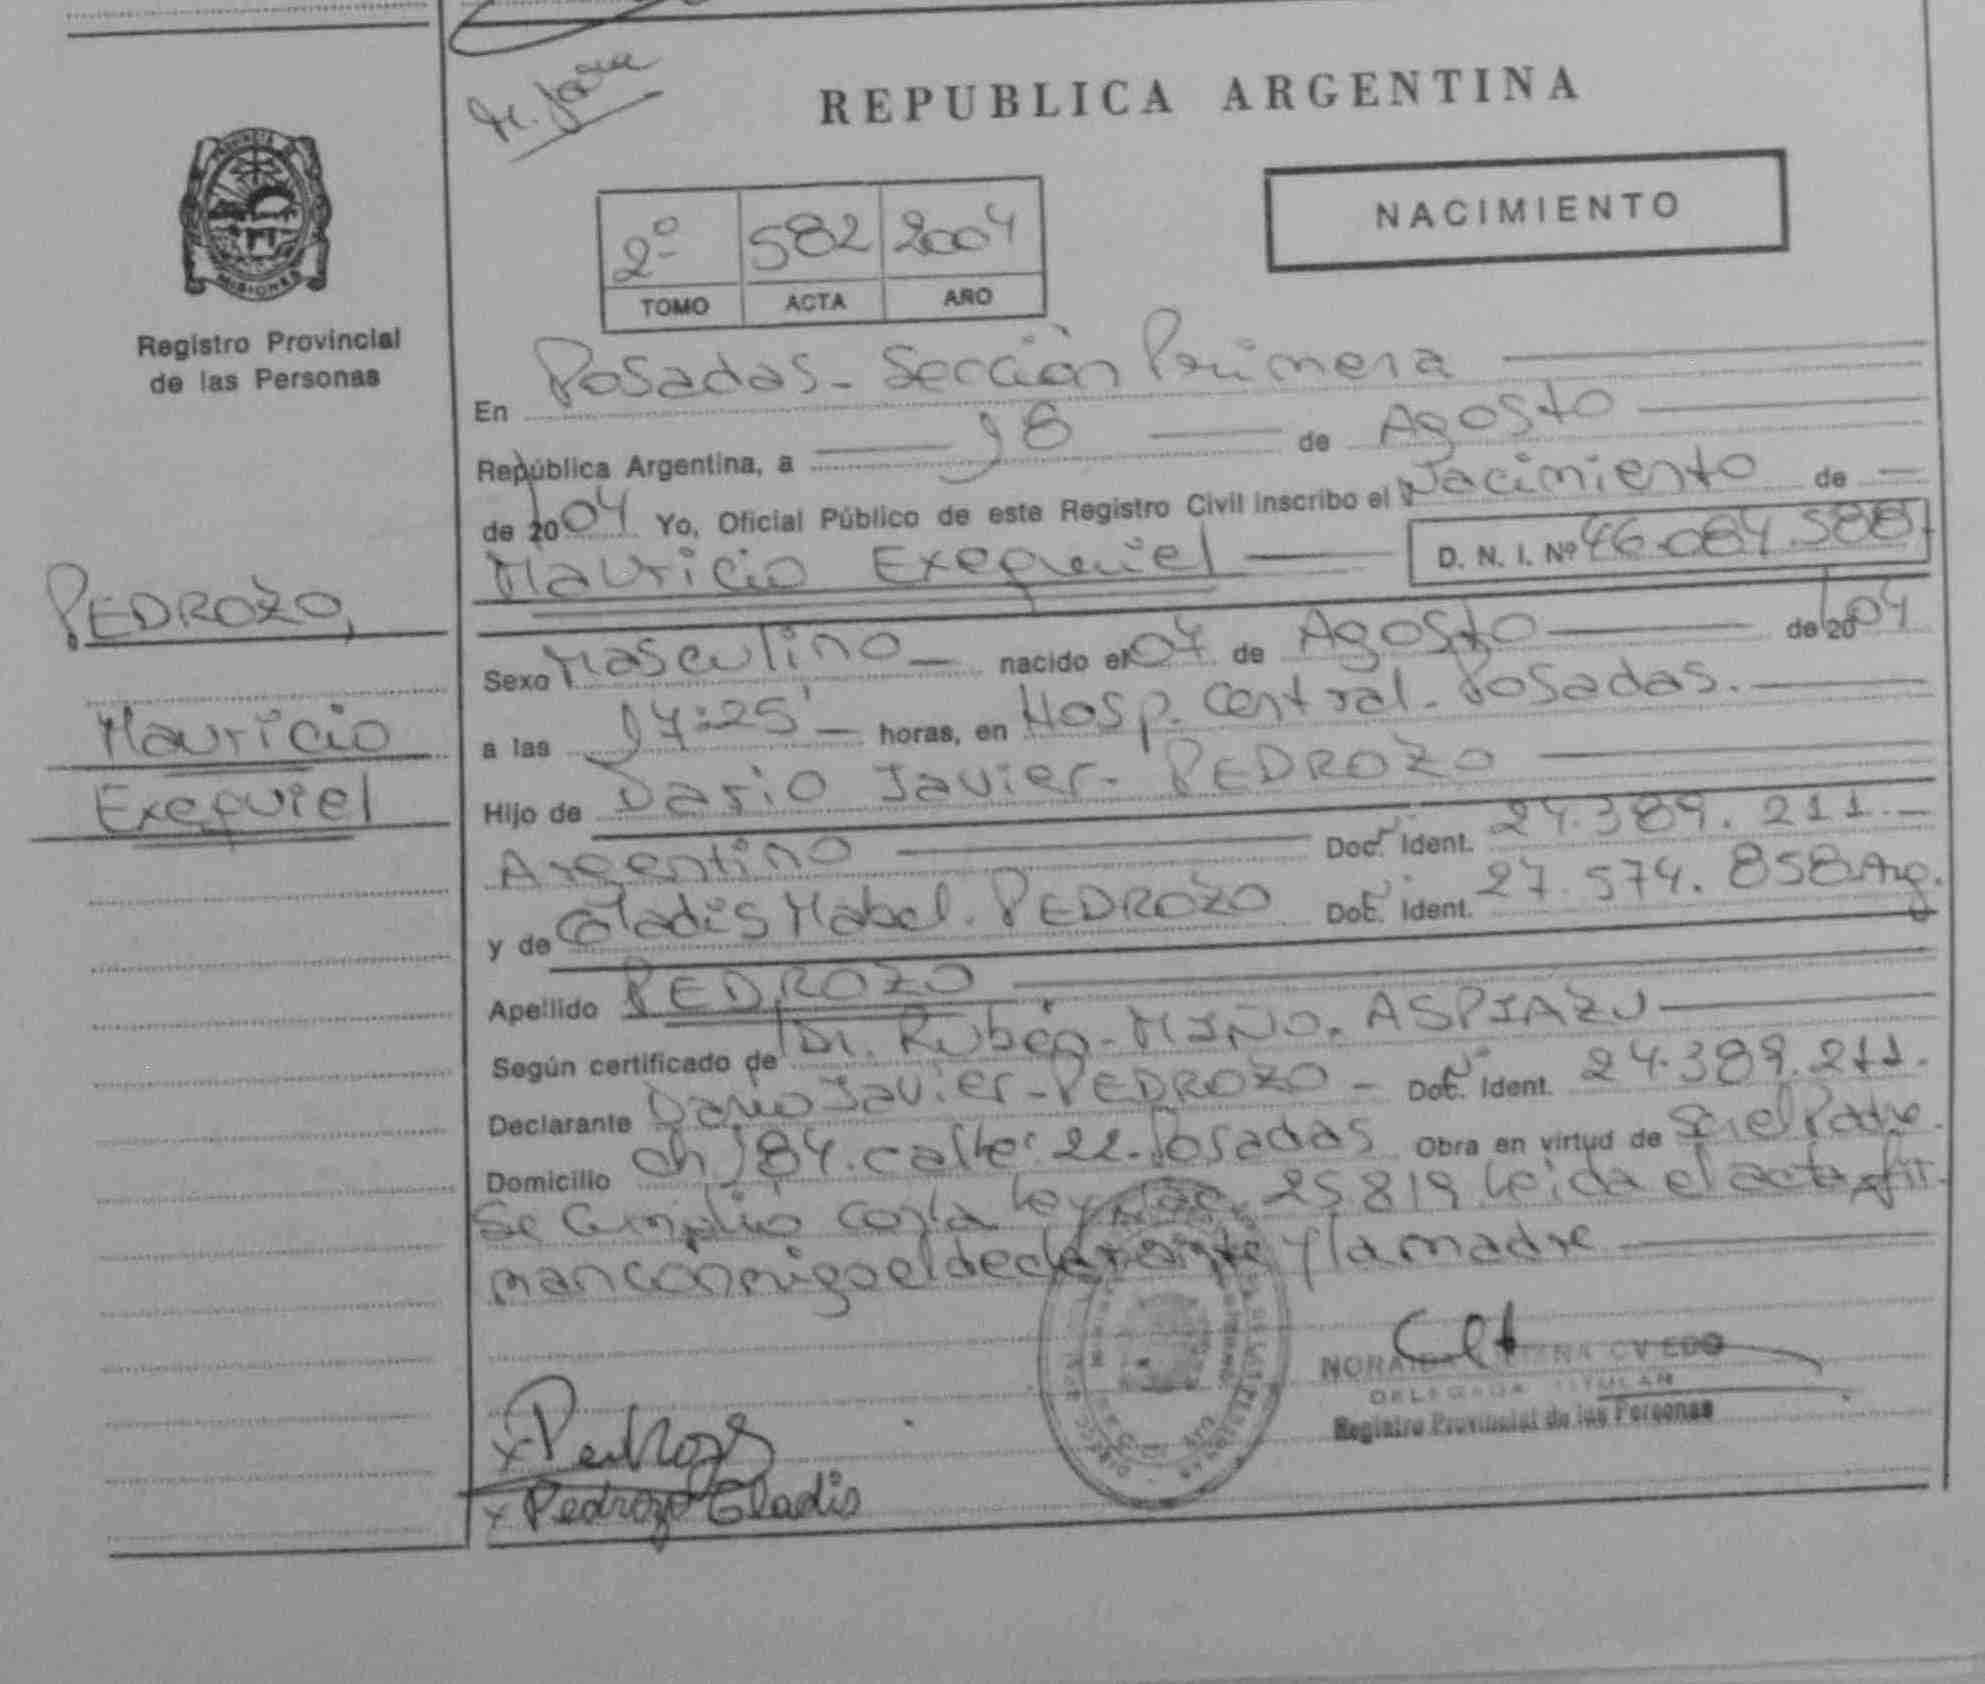 REPUBLICA ARGENTINA
NACIMIENTO
2º 582 2004
TOMO ACTA AÑO
PROVINCIA DE
MISIONES
Registro Provincial
de las Personas
PEDROZO,
Mauricio
Exequiel
En Posadas - Sección Primera
República Argentina, a 18 de Agosto
de 2004 Yo, Oficial Público de este Registro Civil inscribo el Nacimiento de
Mauricio Exequiel D. N. I. Nº 46.084.588
Sexo Masculino nacido el 04 de Agosto de 2004
a las 17:25' horas, en Hosp. Central - Posadas.
Hijo de Dario Javier - PEDROZO
Argentino Doc. Ident. 24.389.211.-
y de Gladis Mabel. PEDROZO Doc. Ident. 27.574.858 Arg.
Apellido PEDROZO
Según certificado de Dr. Rubén - MIÑO. ASPIAZU
Declarante Dario Javier - PEDROZO - Doc. Ident. 24.389.211.
Domicilio ch 184. calle: 22 - Posadas Obra en virtud de Ser el Padre.
Se Cumplio con la ley 25819 leida el acta fir-
man conmigo el declarante y la madre
NORA OVIEDO
DELEGADA TITULAR
Registro Provincial de las Personas
x Pedrozo
x Pedrozo Gladis